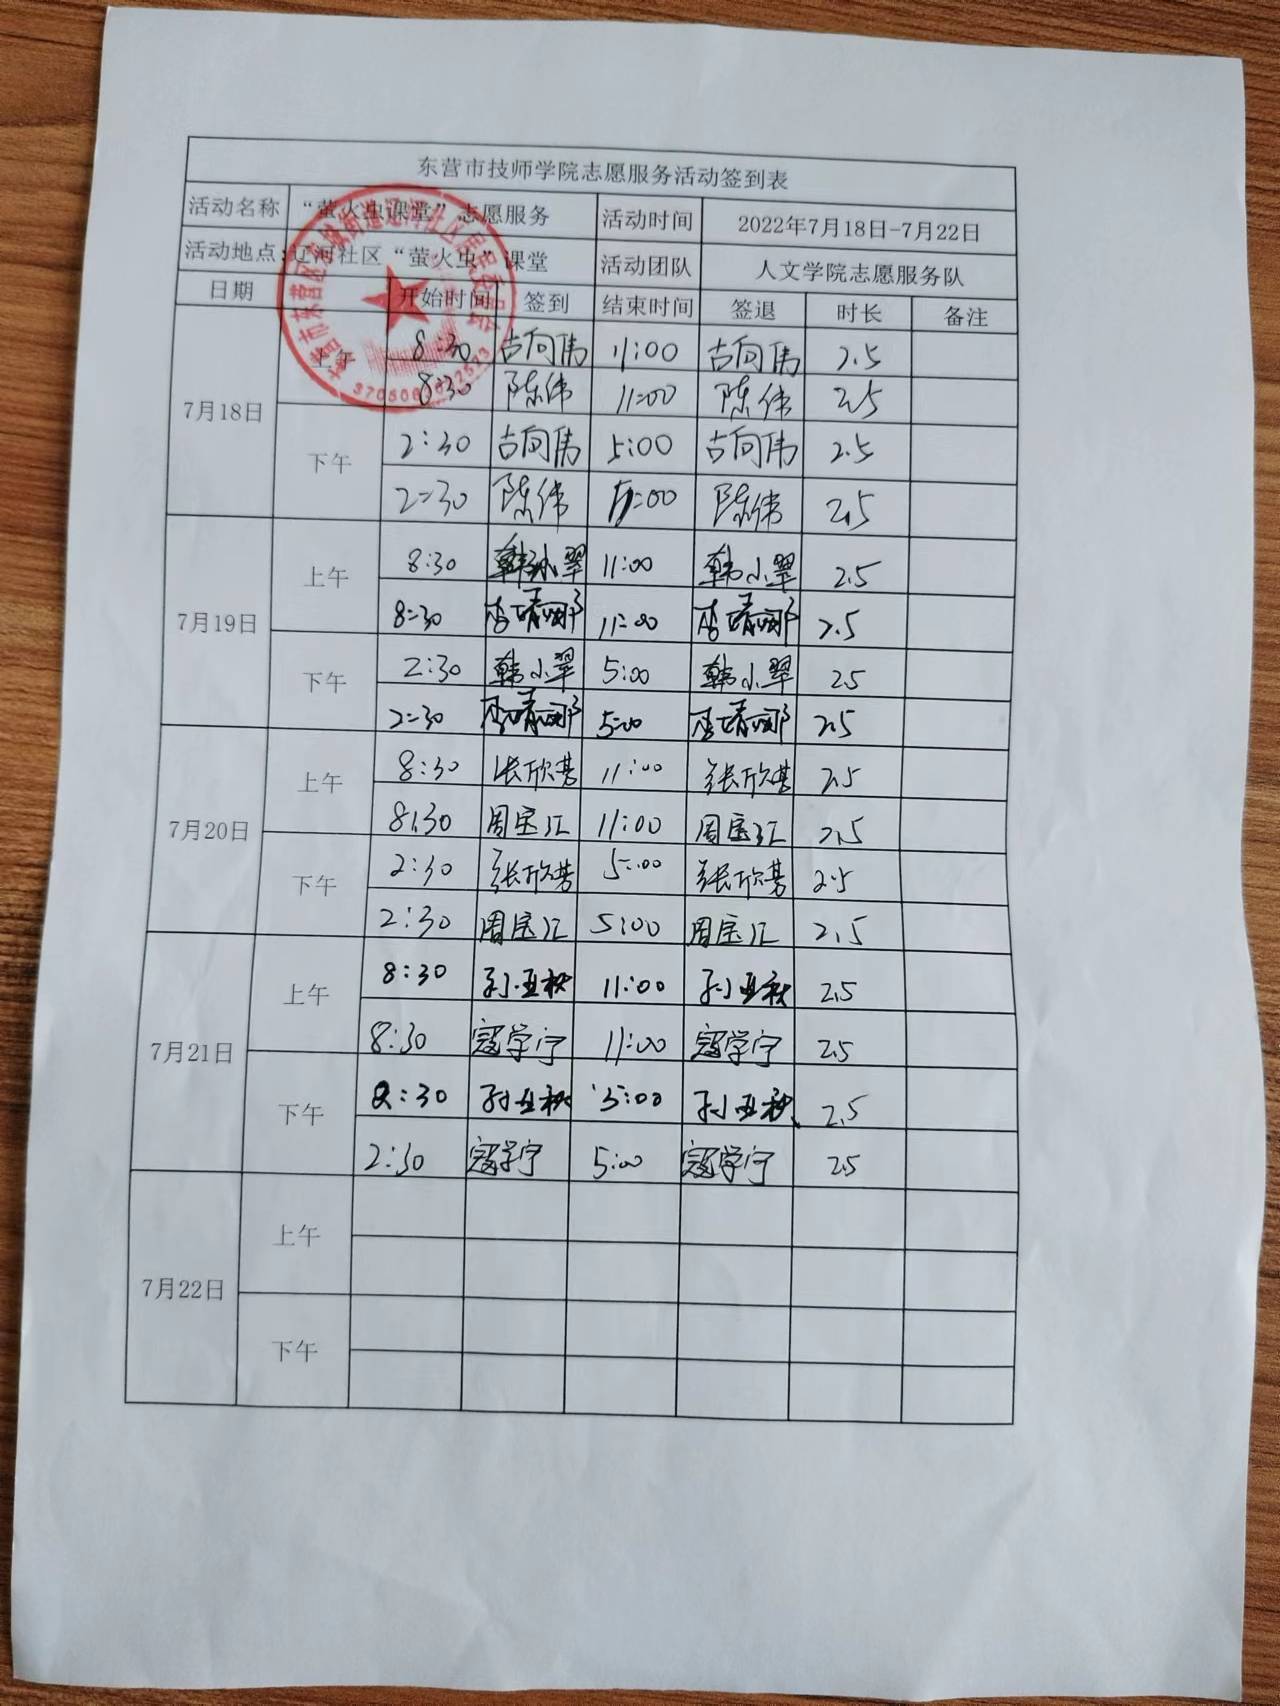 东营市技师学院志愿服务活动签到表
活动名称 “萤火虫课堂”志愿服务 活动时间 2022年7月18日-7月22日
活动地点:辽河社区“萤火虫”课堂 活动团队 人文学院志愿服务队
日期 开始时间 签到 结束时间 签退 时长 备注
7月18日 上午 8:30 古向伟 11:00 古向伟 2.5
8:30 陈伟 11:00 陈伟 2.5
下午 2:30 古向伟 5:00 古向伟 2.5
2:30 陈伟 5:00 陈伟 2.5
7月19日 上午 8:30 韩小翠 11:00 韩小翠 2.5
8:30 李婧娜 11:00 李婧娜 2.5
下午 2:30 韩小翠 5:00 韩小翠 2.5
2:30 李婧娜 5:00 李婧娜 2.5
7月20日 上午 8:30 张欣 11:00 张欣 2.5
8:30 周宝汇 11:00 周宝汇 2.5
下午 2:30 张欣 5:00 张欣 2.5
2:30 周宝汇 5:00 周宝汇 2.5
7月21日 上午 8:30 孙亚秋 11:00 孙亚秋 2.5
8:30 寇学宁 11:00 寇学宁 2.5
下午 2:30 孙亚秋 5:00 孙亚秋 2.5
2:30 寇学宁 5:00 寇学宁 2.5
7月22日 上午
下午